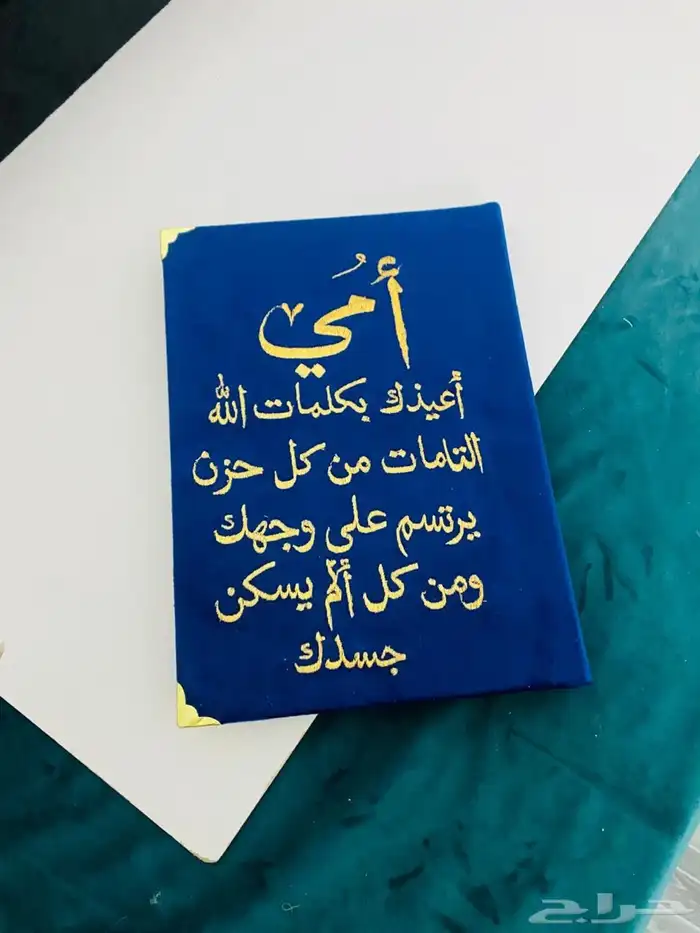 أُمي
أعيذك بكلمات الله
التامات من كل حزن
يرتسم على وجهك
ومن كل ألم يسكن
جسدك
حراج